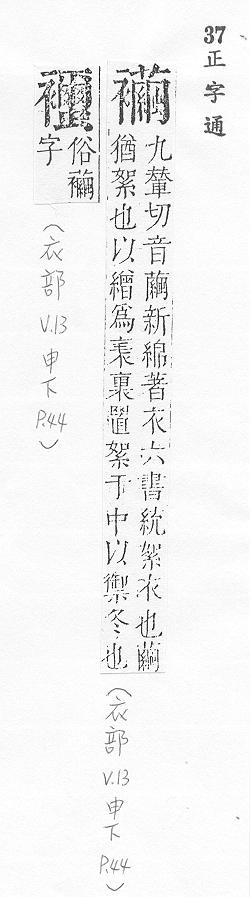 37
正字通
襺
九輦切音繭新綿著衣六書統絮衣也繭
猶絮也以繒為表裏置絮于中以禦冬也
(衣部 V.13 申下 P.44)
俗襺
字
(衣部 V.13 申下 P.44)